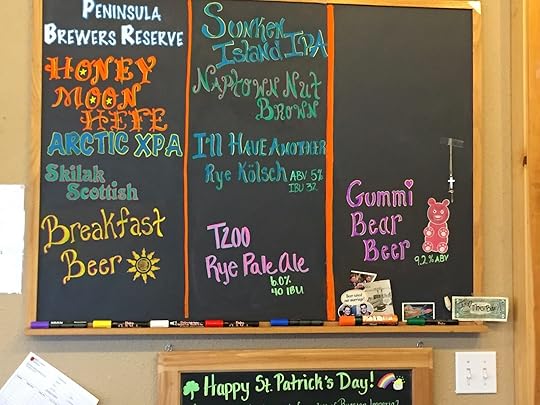 PENINSULA
BREWERS RESERVE
HONEY
MOON
HEFE
ARCTIC XPA
Skilak
Scottish
Breakfast
Beer
SUNKEN
ISLAND IPA
NAPTOWN NUT
BROWN
I'LL HAVE ANOTHER
RYE KÖLSCH ABV 5%
IBU 32
T200
Rye Pale Ale
6.0%
40 IBU
Gummi
Bear
Beer
9.2% ABV
Happy St. Patrick's Day!